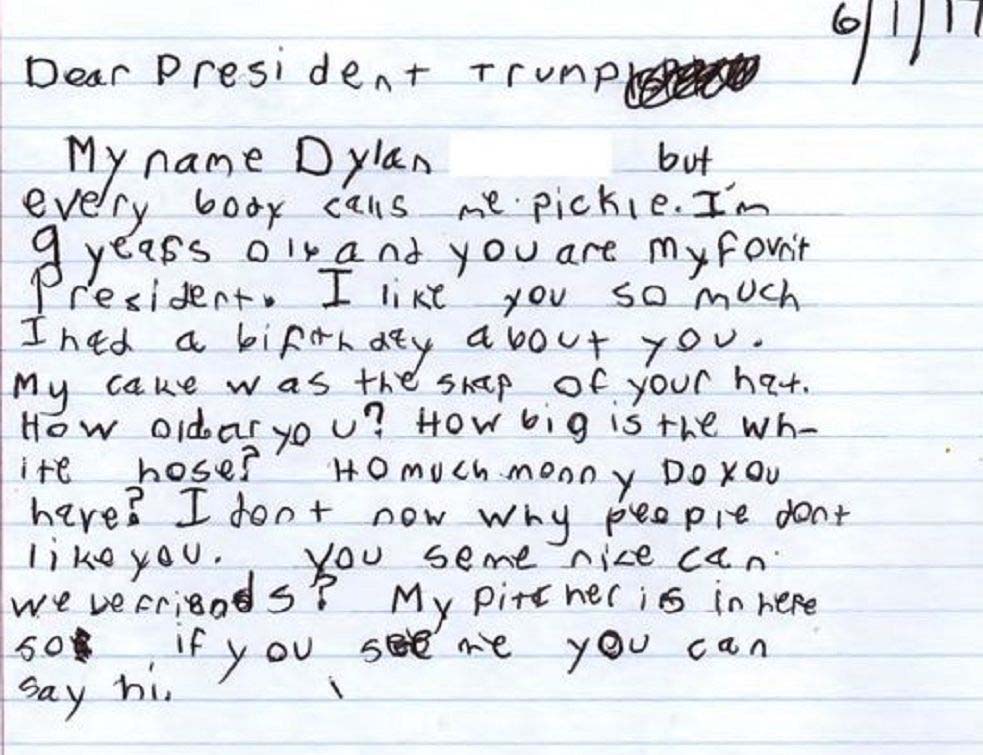 6/1/17
Dear President Trump
My name Dylan but
every body calls me pickle. I'm
9 years old and you are my fovrit
President. I like you so much
I had a birthday about you.
My cake was the shap of your hat.
How old ar you? How big is the wh-
ite hose? Ho much monny Do you
have? I dont now why people dont
like you. You seme nice can
we be friends? My pitcher is in here
so if you see me you can
say hi.